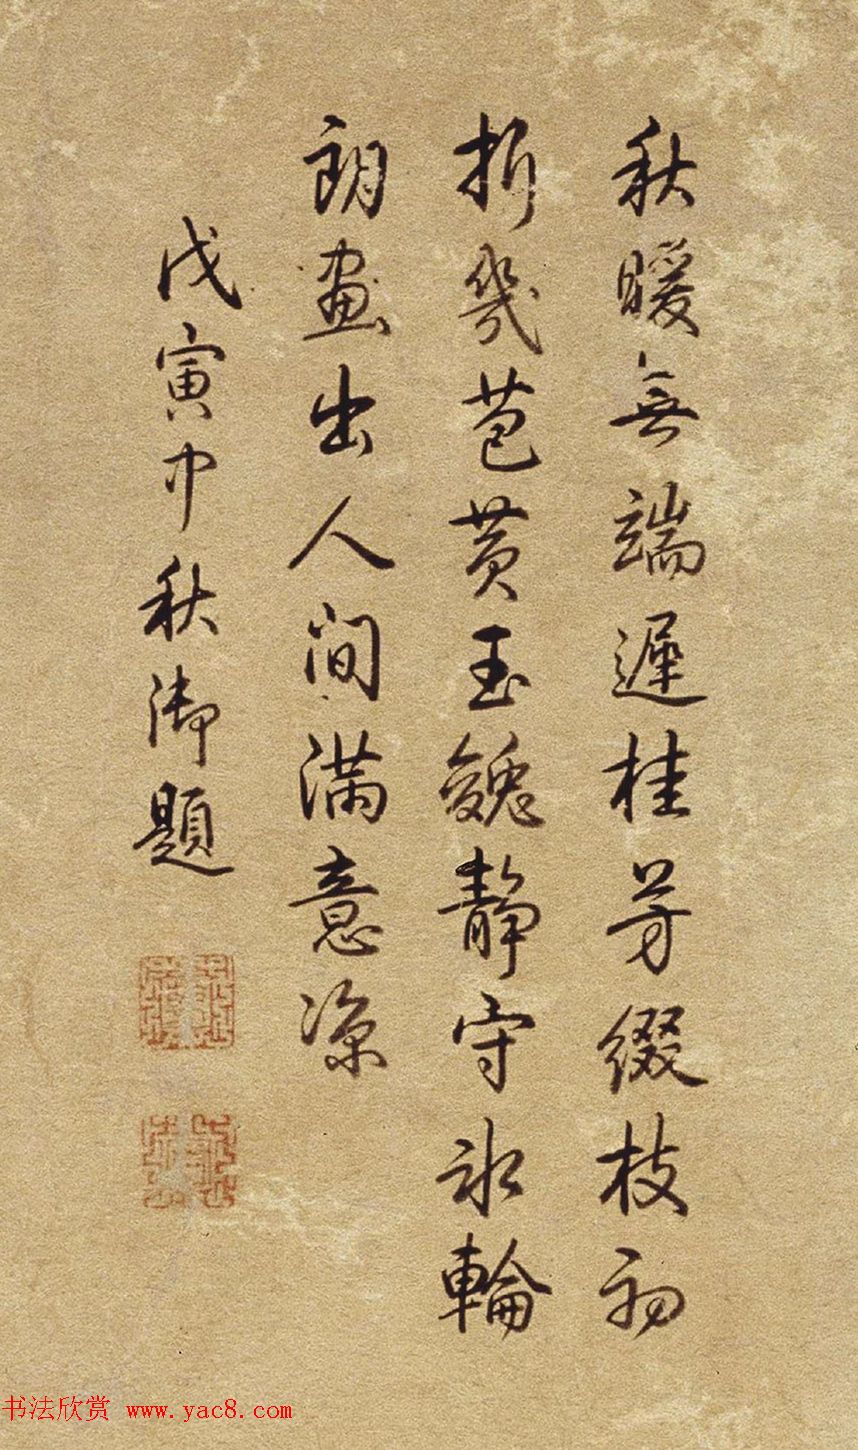 秋暖無端遲桂芳綴枝初
折幾苞黃玉魏靜守冰輪
朗畫出人間滿意涼
戊寅中秋御題
书法欣赏 www.yac8.com